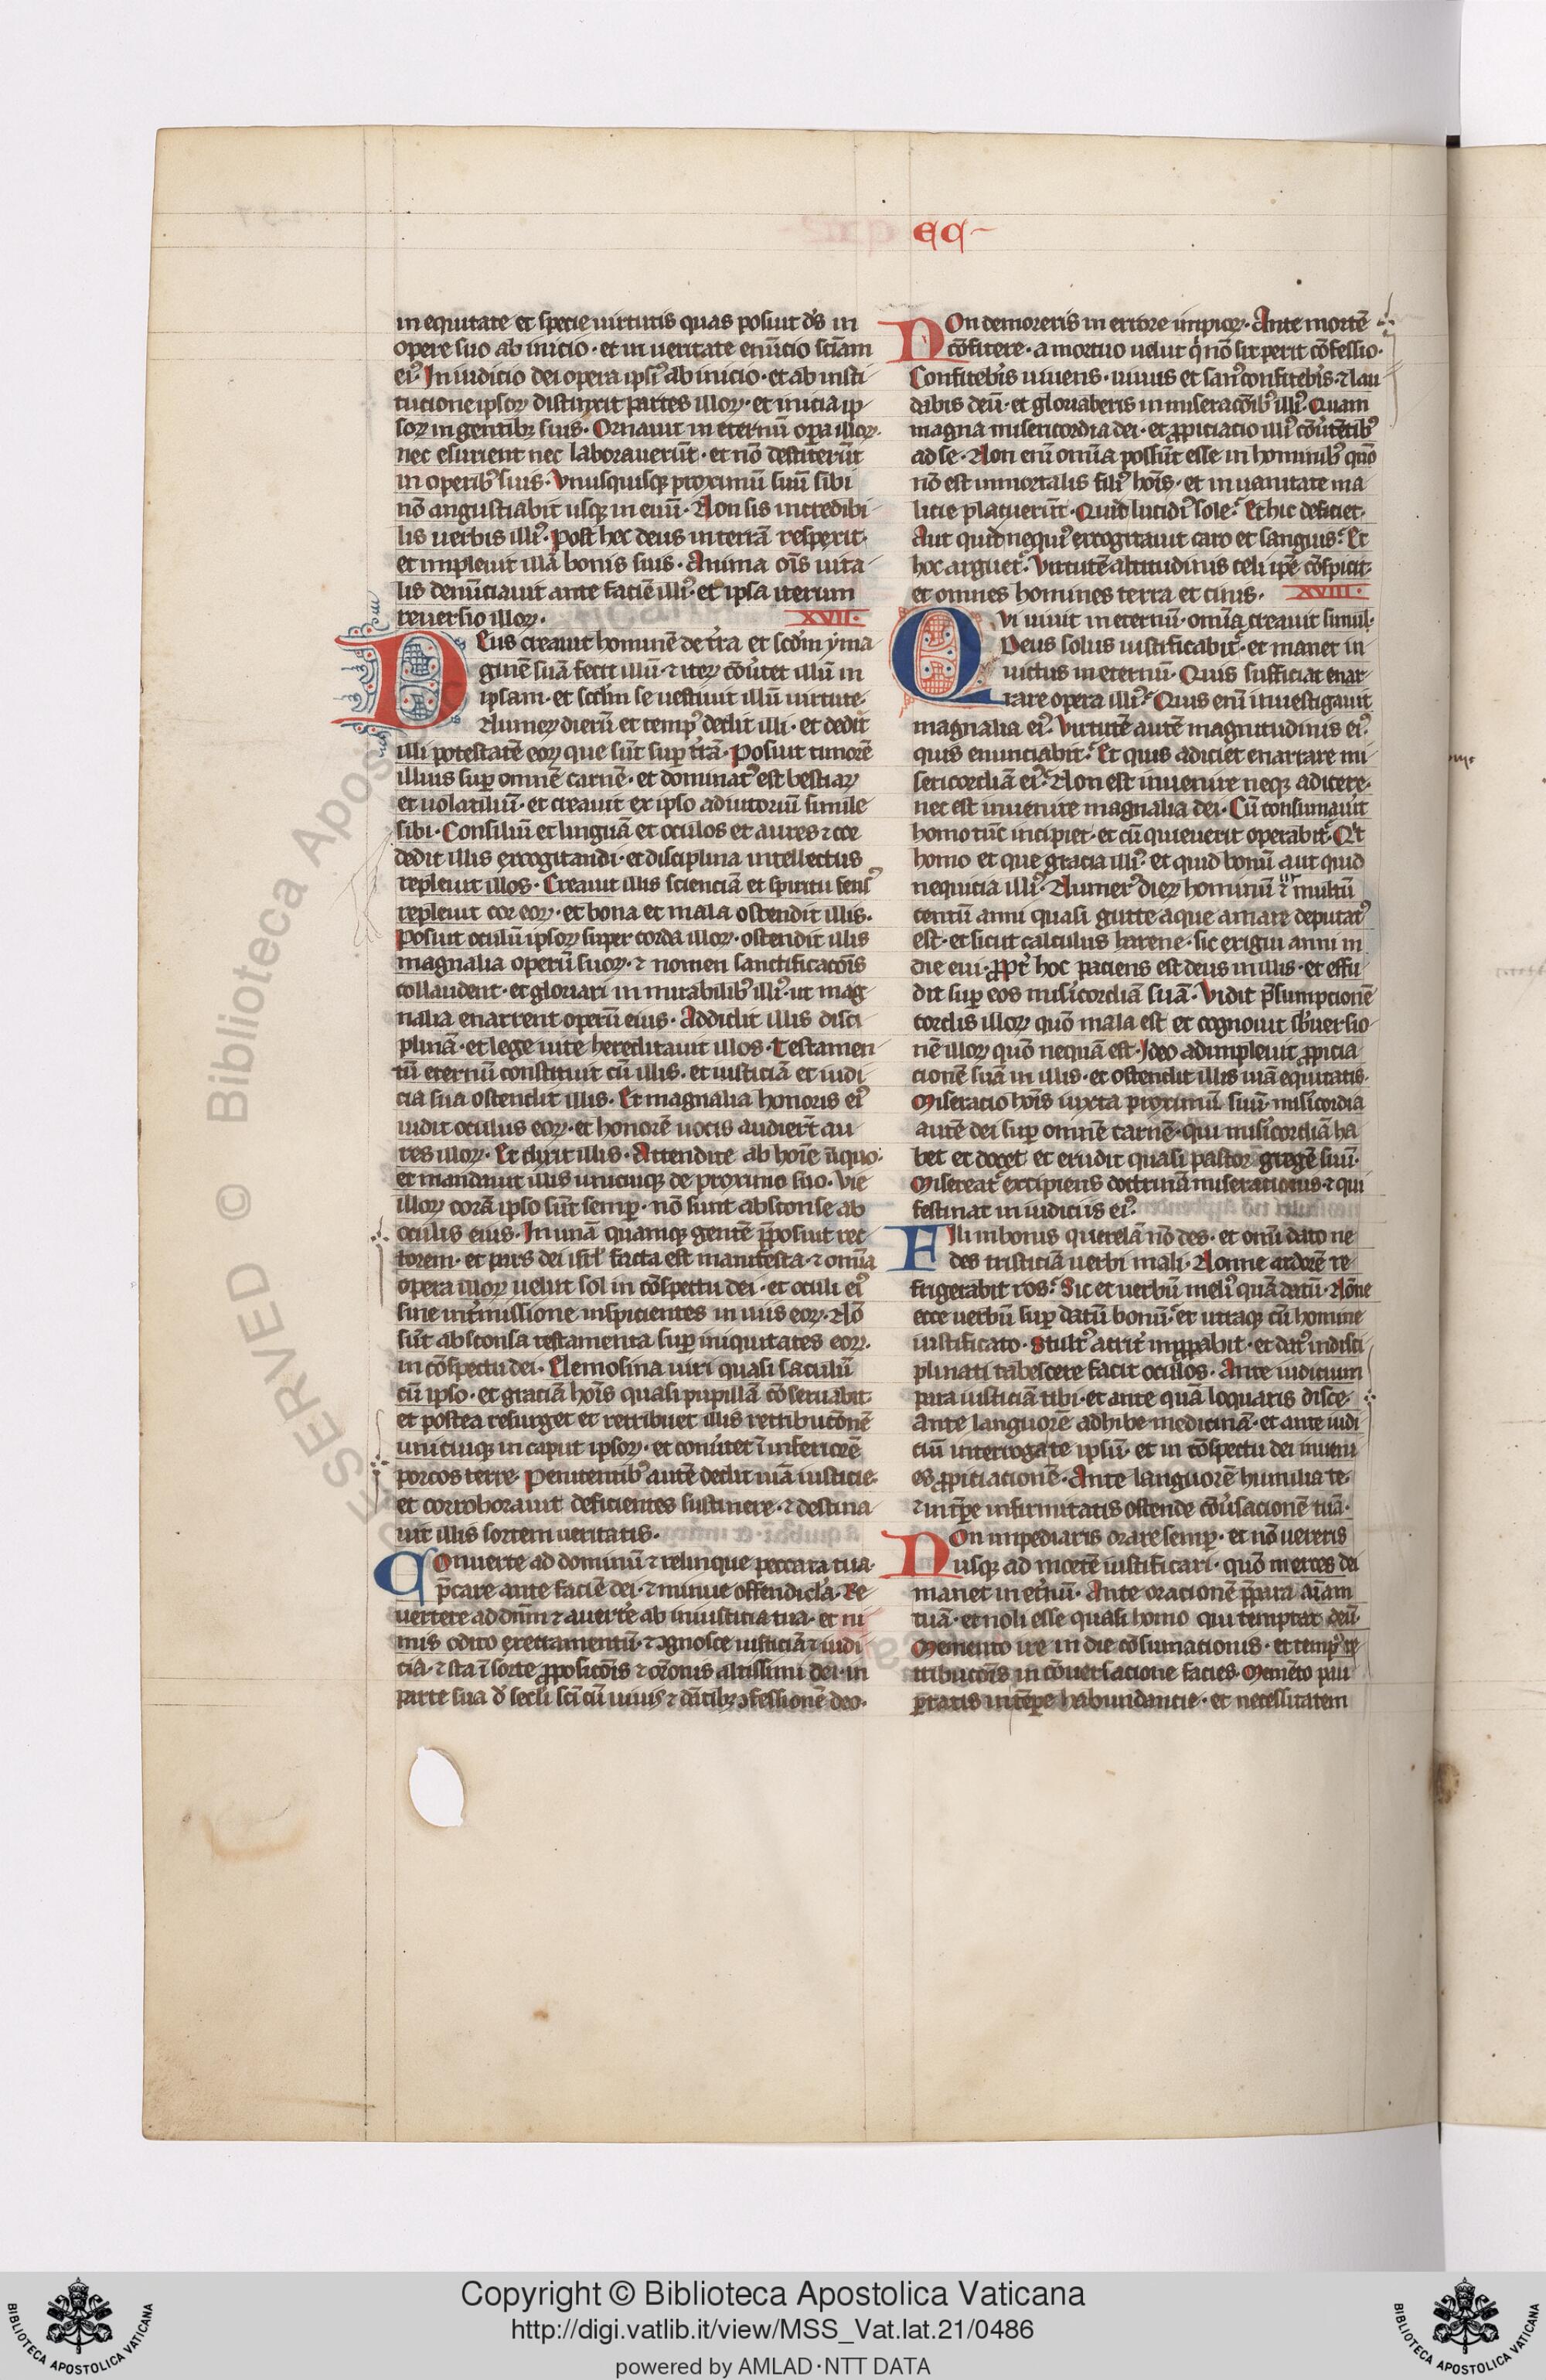 EC
in equitate et specie uirtutis quas posuit dс̄ in
opere suo ab inicio · et in ueritate enūcio sciām
eiꝰ. In iudicio dei opera ipsiꝰ ab inicio · et ab insti
tucione ipsoꝝ distinxit partes illoꝝ · et inicia ip
soꝝ in gentibꝫ suis · Ornauit in eternū opa illoꝝ ·
nec esurient nec laborauerūt · et nō destiterūt
in operibꝰ suis · Vnusquisqꝫ proximū suū sibi
nō angustiabit usqꝫ in euū · Non sis incredibi
lis uerbis illiꝰ · Post hec deus in terrā respexit ·
et impleuit illā bonis suis · Anima oīs uita
lis denūciauit ante faciē illiꝰ · et ipsa iterum
reuersio illoꝝ ·
XVII ·
Deus creauit hominē de t̄ra et scd̄m yma
ginē suā fecit illū · ⁊ iteꝝ cōūtet illū in
ipsam · et scd̄m se uestiuit illū uirtute ·
Numeꝝ dierū et tempꝰ dedit illi · et dedit
illi potestatē eoꝝ que sūt suꝑ t̄rā · Posuit timorē
illius suꝑ omnē carnē · et dominatꝰ est bestiaꝝ
et uolatiliū · et creauit ex ipso adiutoriū simile
sibi · Consiliū et linguā et oculos et aures ⁊ cor
dedit illis excogitandi · et disciplina intellectus
repleuit illos · Creauit illis scienciā et spiritu sensꝰ
repleuit cor eoꝝ · et bona et mala ostendit illis ·
Posuit oculū ipsoꝝ super corda illoꝝ · ostendit illis
magnalia operū suoꝝ · ⁊ nomen sanctificacōis
collaudent · et gloriari in mirabilibꝰ illiꝰ · ut mag
nalia enarrent operū eius · Addidit illis disci
plinā · et lege uite hereditauit illos · Testamen
tū eternū constituit cū illis · et iusticiā et iudi
cia sua ostendit illis · Et magnalia honoris eiꝰ
uidit oculus eoꝝ · et honorē uocis audier̄t au
res illoꝝ · Et dixit illis · Attendite ab hoīe iīquo ·
et mandauit illis unicuiqꝫ de proximo suo · Vie
illoꝝ corā ipso sūt semꝑ · nō sunt absconse ab
oculis eius · In unā quamqꝫ gentē p̄posuit rec
torem · et pars dei isrl̄ facta est manifesta · ⁊ om̄ia
opera illoꝝ uelut sol in cōspectu dei · et oculi eiꝰ
sine int̄missione inspicientes in uiis eoꝝ · Nō
sūt absconsa testamenta suꝑ iniquitates eoꝝ ·
in cōspectu dei · Elemosina uiri quasi saculū
cū ipso · et graciā hoīs quasi pupillā cōseruabit
et postea resurget et retribuet illis retribucōnē
unicuiqꝫ in caput ipsoꝝ · et conūtet ī inferiorē
porcos terre · Penitentibꝰ autē dedit uiā iusticie ·
et corroborauit deficientes sustinere · ⁊ destina
uit illis sortem ueritatis ·
Conuerte ad dominū ⁊ relinque peccata tua ·
p̄care ante faciē dei · ⁊ minue offendicla · Re
uertere ad dnm̄ ⁊ auerte ab iniusticia tua · et ni
mis odito execramentū · ⁊ ꝯgnosce iusticiā ⁊ iudi
cia · ⁊ sta ī sorte ꝓposicōis ⁊ or̄onis altissimi dei · in
parte sua d̄ secl̄i sc̄i cū uiuis ⁊ dātibꝫ ꝯfessionē deo ·
Non demoreris in errore impioꝝ · Ante mortē
cōfitere · a mortuo uelut q̄ nō sit perit cōfessio ·
Confitebꝰis uiuens · uiuus et sanꝰ confitebꝰis · ⁊ lau
dabis deū · et gloriaberis in miseracōibꝰ illiꝰ · Quam
magna misericordia dei · et ꝓpiciacio illiꝰ cōūtētibꝰ
ad se · Non enī om̄ia possūt esse in hominibꝰ qnō
nō est inmortalis filiꝰ hoīs · et in uanitate ma
licie placuerūt · Quid lucidiꝰ sole · Et hic deficiet ·
Aut quid nequiꝰ excogitauit caro et sanguis · Et
hoc arguetꝰ · Virtutē altitudinis celi ip̄e cōspicit ·
et omnes homines terra et cinis ·
XVIII ·
Qvi uiuit in eternū · om̄ia creauit simul ·
Deus solus iustificabitꝰ · et manet in
uictus in eternū · Quis sufficiat enar
rare opera illiꝰ · Quis enī inuestigauit
magnalia eiꝰ · Virtutē autē magnitudinis eiꝰ ·
quis enunciabit · Et quis adiciet enarrare mi
sericordiā eiꝰ · Non est inuenire neqꝫ adicere ·
nec est inuenire magnalia dei · Cū consumauit
homo tūc incipiet · et cū quieuerit operabitꝰ · Qͥt
homo et que gracia illiꝰ · et quid bonū aut quid
nequicia illiꝰ · Numerꝰ dieꝝ hominū ut multū
centū anni quasi gutte aque amare deputatꝰ
est · et sicut calculus harene · sic exigui anni in
die eui · ꝓpt̄ hoc paciens est deus in illis · et effu
dit suꝑ eos mis̄icordiā suā · Vidit p̄sumpcionē
cordis illoꝝ quō mala est et cognouit sb̄uersio
nē illoꝝ quō nequā est · Ideo adimpleuit ꝓpicia
cionē suā in illis · et ostendit illis uiā equitatis ·
Miseracio hoīs iuxta proximū suū · mis̄icordia
autē dei suꝑ omnē carnē · qui mis̄icordiā ha
bet et docet et erudit quasi pastor gregē suū ·
Misereatꝰ excipiens doctrinā miseracionis · ⁊ qui
festinat in iudiciis eiꝰ ·
Fili in bonis querelā nō des · et om̄i dato ne
des tristiciā uerbi mali · Nonne ardorē re
frigerabit ros · Sic et uerbū meliꝰ quā datū · Nōne
ecce uerbū suꝑ datū bonū · et utraqꝫ cū homine
iustificato · Stultꝰ acrit̄ inꝓꝑabit · et datꝰ indisci
plinati tabescere facit oculos · Ante iudicium
para iusticiā tibi · et ante quā loquaris disce ·
Ante languorē adhibe medicinā · et ante iudi
ciū interroga te ipsū · et in cōspectu dei inueni
es ꝓpiciacionē · Ante languorē humilia te ·
⁊ in tꝑe infirmitatis ostende cōūsacionē tuā ·
Non impediaris orare semꝑ · et nō uereris
usqꝫ ad mortē iustificari · quō merces dei
manet in et̄nū · Ante oracionē p̄para aīam
tuā · et noli esse quasi homo qui temptat deū ·
Memento ire in die cōsumacionis · et tempꝰ re
tribucōis in cōuersacione facies · Memēto pau
ꝑtatis in tꝑe habundancie · et necessitatem
Copyright © Biblioteca Apostolica Vaticana
http://digi.vatlib.it/view/MSS_Vat.lat.21/0486
powered by AMLAD · NTT DATA
BIBLIOTECA APOSTOLICA VATICANA
BIBLIOTECA APOSTOLICA VATICANA